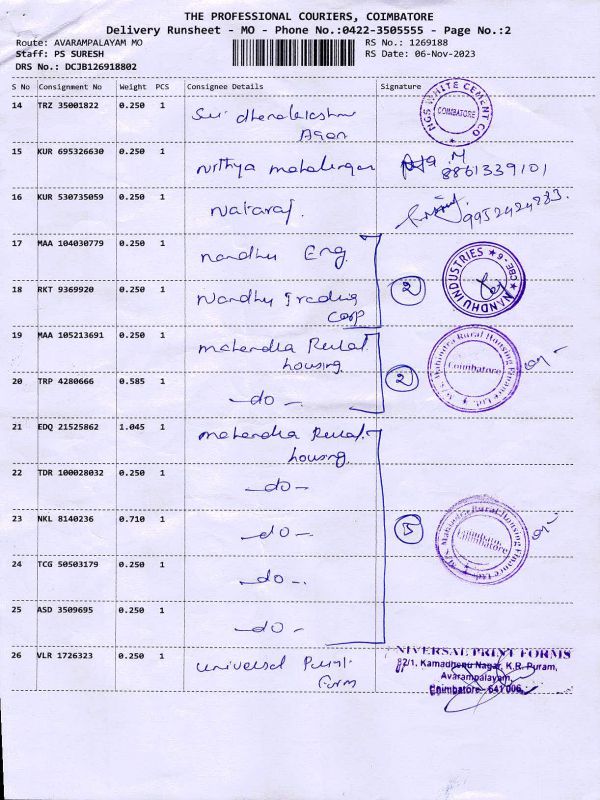 THE PROFESSIONAL COURIERS, COIMBATORE
Delivery Runsheet - MO - Phone No.:0422-3505555 - Page No.:2
Route: AVARAMPALAYAM MO
RS No.: 1269188
Staff: PS SURESH
RS Date: 06-Nov-2023
DRS No.: DCJB126918802
S No Consignment No Weight PCS Consignee Details Signature
14 TRZ 35001822 0.250 1 Sri dhanalakshmi
NGS WHITE CEMENT CO
COIMBATORE
15 KUR 695326630 0.250 1 Nithya mahalingam
8861339101
16 KUR 530735059 0.250 1 Nataraj.
9952424283.
17 MAA 104030779 0.250 1 nandhu Eng.
18 RKT 9369920 0.250 1 Nandhu Trading
Corp
2
NANDHU INDUSTRIES ★ CBE-6 ★
19 MAA 105213691 0.250 1 mahendra Rural
housing
20 TRP 4280666 0.585 1 -do-
2
M/s. Mahindra Rural Housing Finance Ltd.
Coimbatore
21 EDQ 21525862 1.045 1 mahendra Rural
housing
22 TDR 100028032 0.250 1 -do-
23 NKL 8140236 0.710 1 -do-
24 TCG 50503179 0.250 1 -do-.
25 ASD 3509695 0.250 1 -do-
5
M/s. Mahindra Rural Housing Finance Ltd.
Coimbatore
26 VLR 1726323 0.250 1 universal Print
Form
UNIVERSAL PRINT FORMS
82/1, Kamadhenu Nagar, K.R. Puram,
Avarampalayam,
Coimbatore - 641 006.